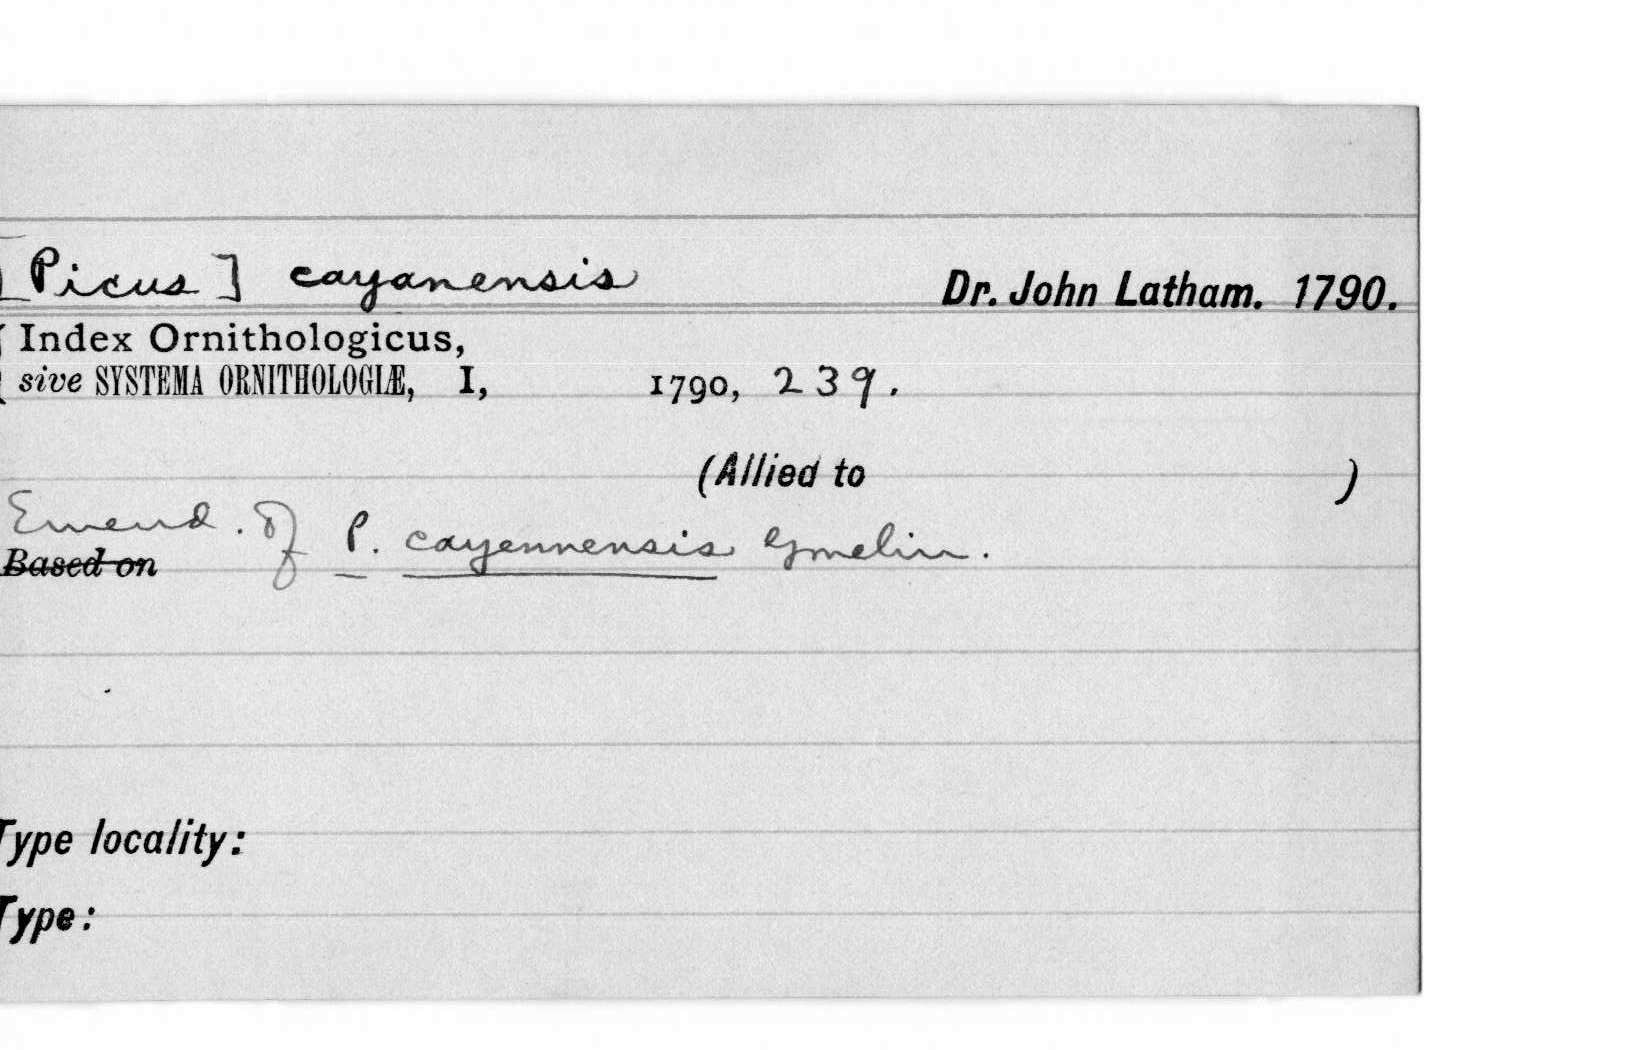 [Picus] cayanensis Dr. John Latham. 1790.
Index Ornithologicus,
sive SYSTEMA ORNITHOLOGIÆ, I, 1790, 239.
(Allied to )
Emend. of P. cayennensis Gmelin.
Based on
Type locality:
Type: